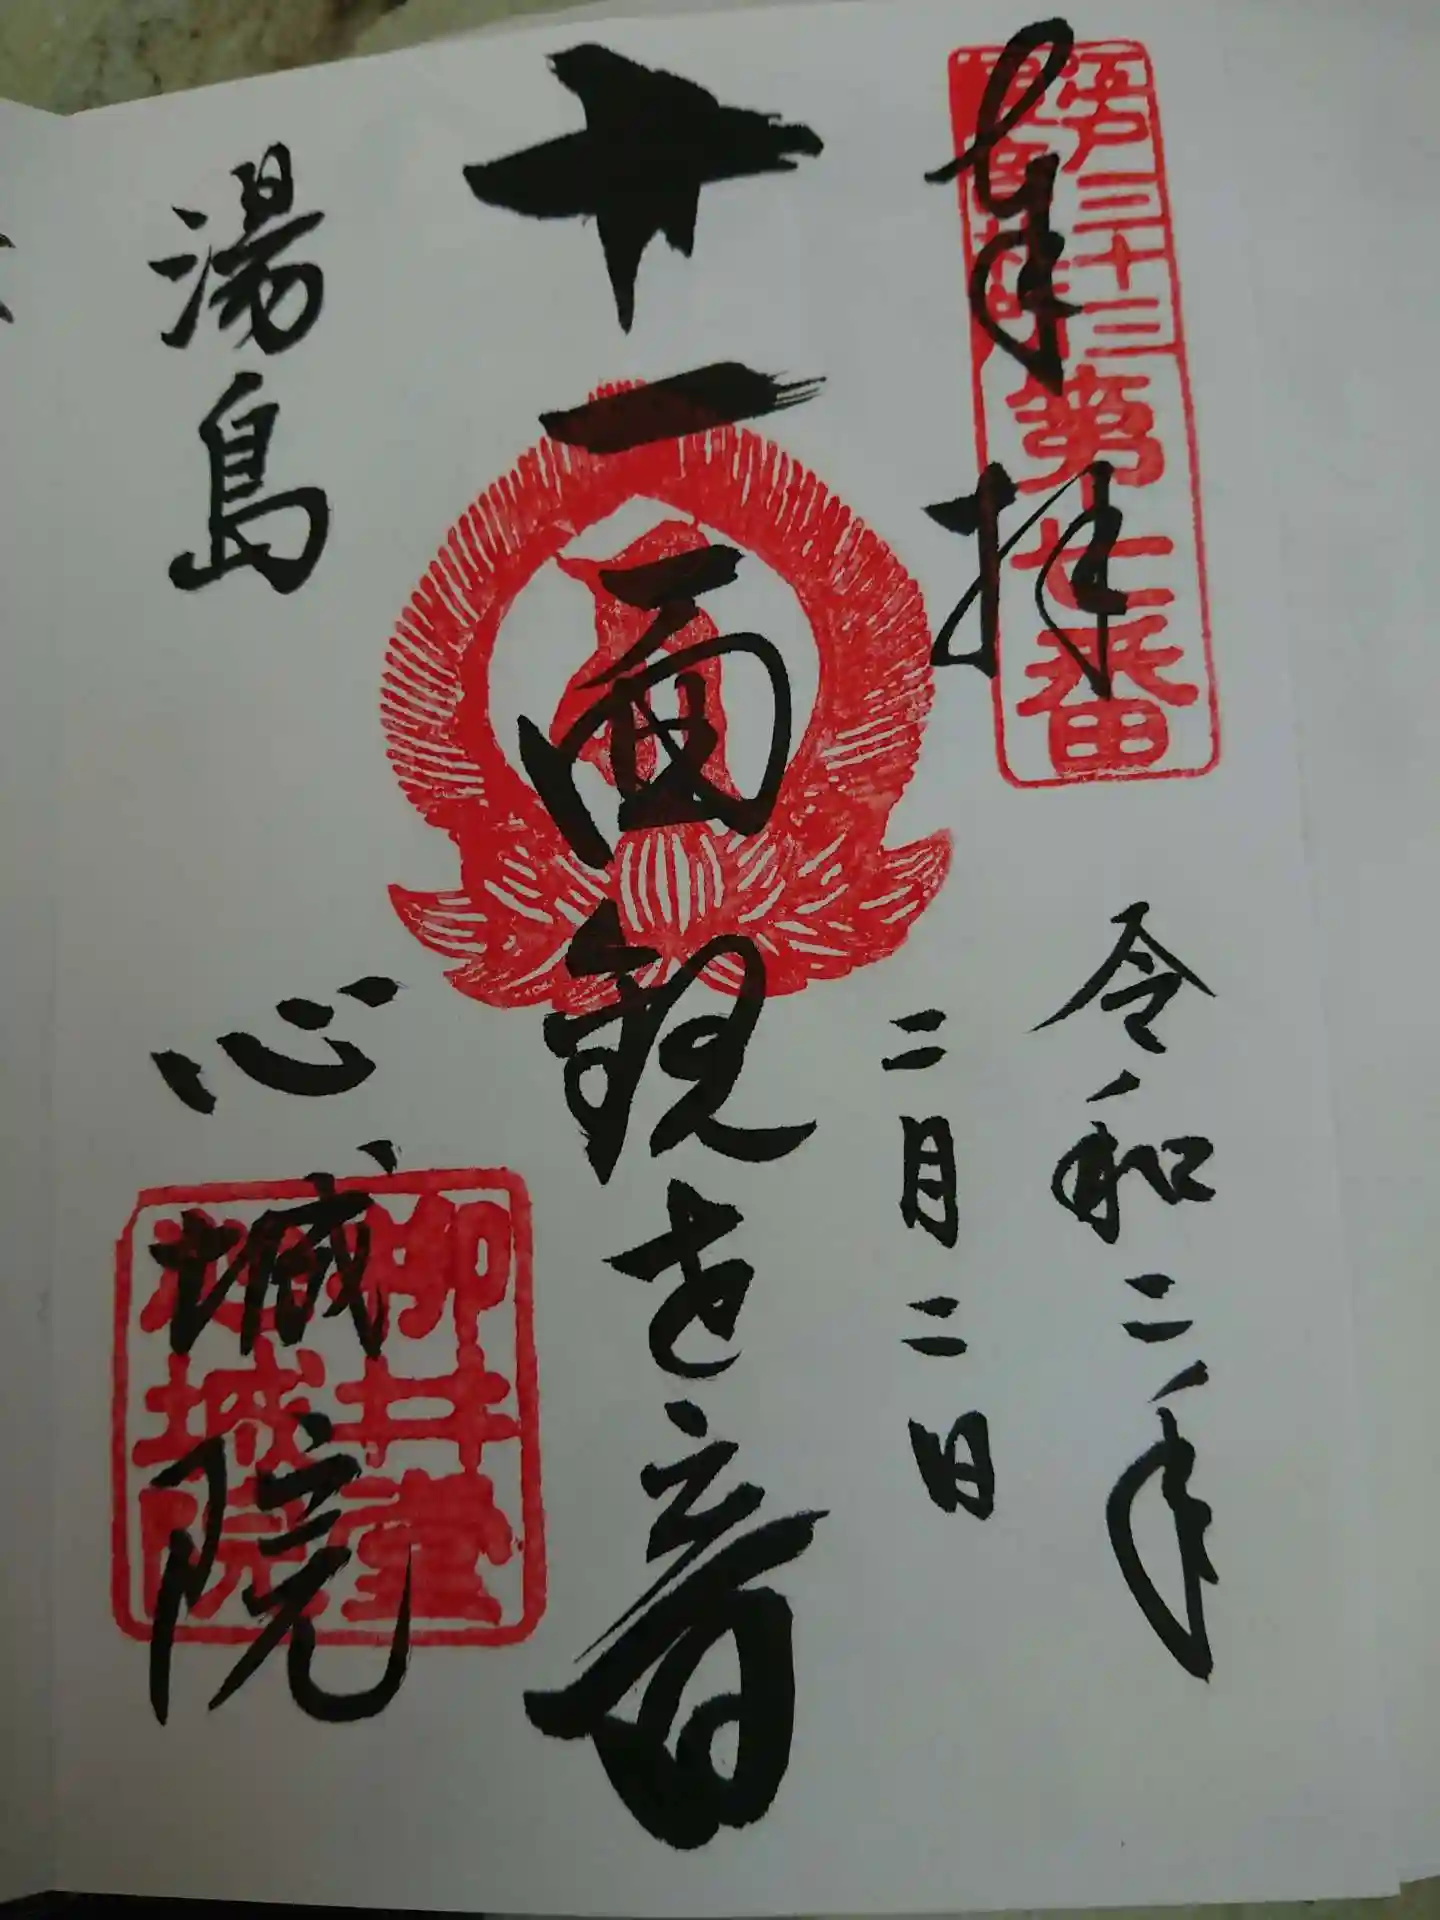 奉拝
江戸三十三
第七番
令和二年
二月二日
十一面観世音
湯島
心城院
柳井堂
心城院